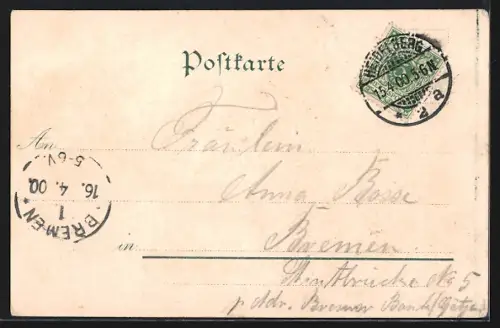 Postkarte
HEIDELBERG
15.4.00. 5-6 N.
* 2a
An
Fräulein
Anna Bosse
in Bremen
No 5
p. Adr. Bremer Bank
BREMEN
1
16. 4. 00.
5-6 V.